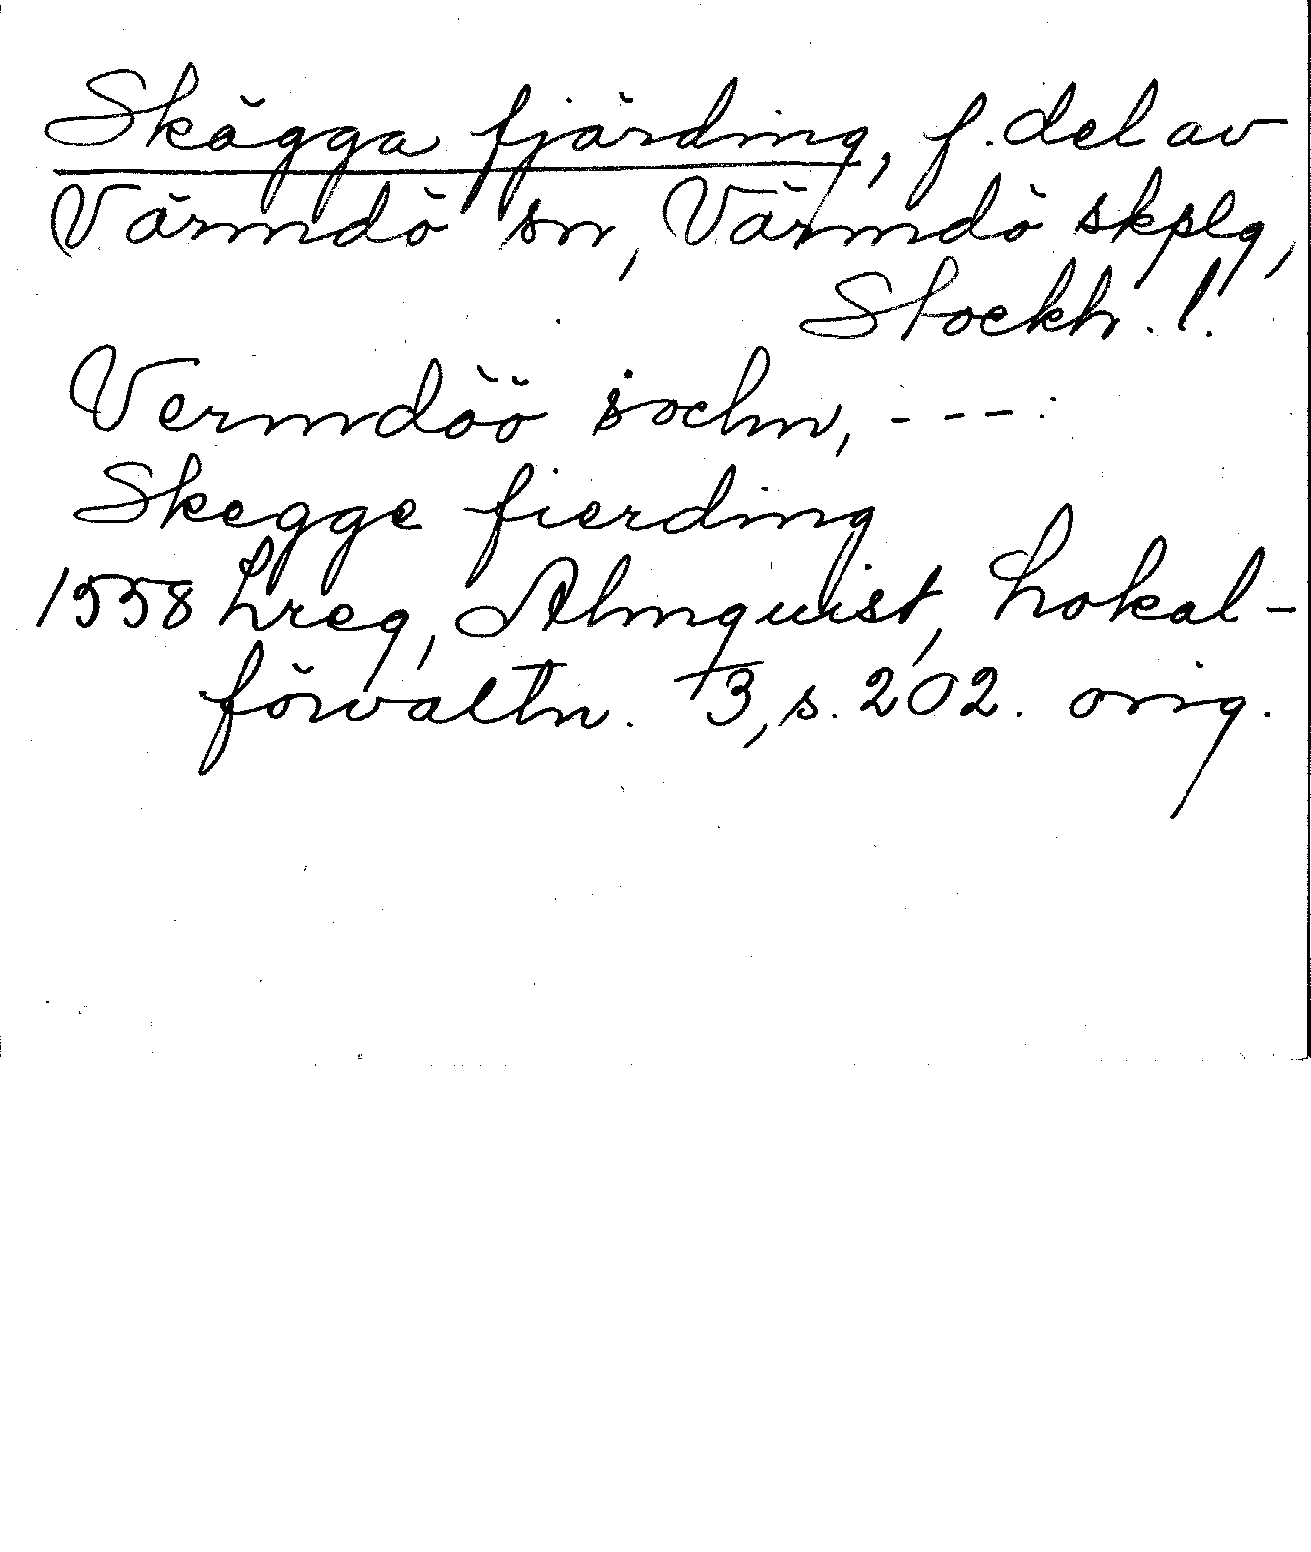 Skägga fjärding, f. del av
Värmdö sn, Värmdö skplg,
Stockh. l.
Vermdöö sochn, - - - :
Skegge fierding
1558 Lreg, Almquist, Lokal-
förvaltn. 3, s. 202. orig.